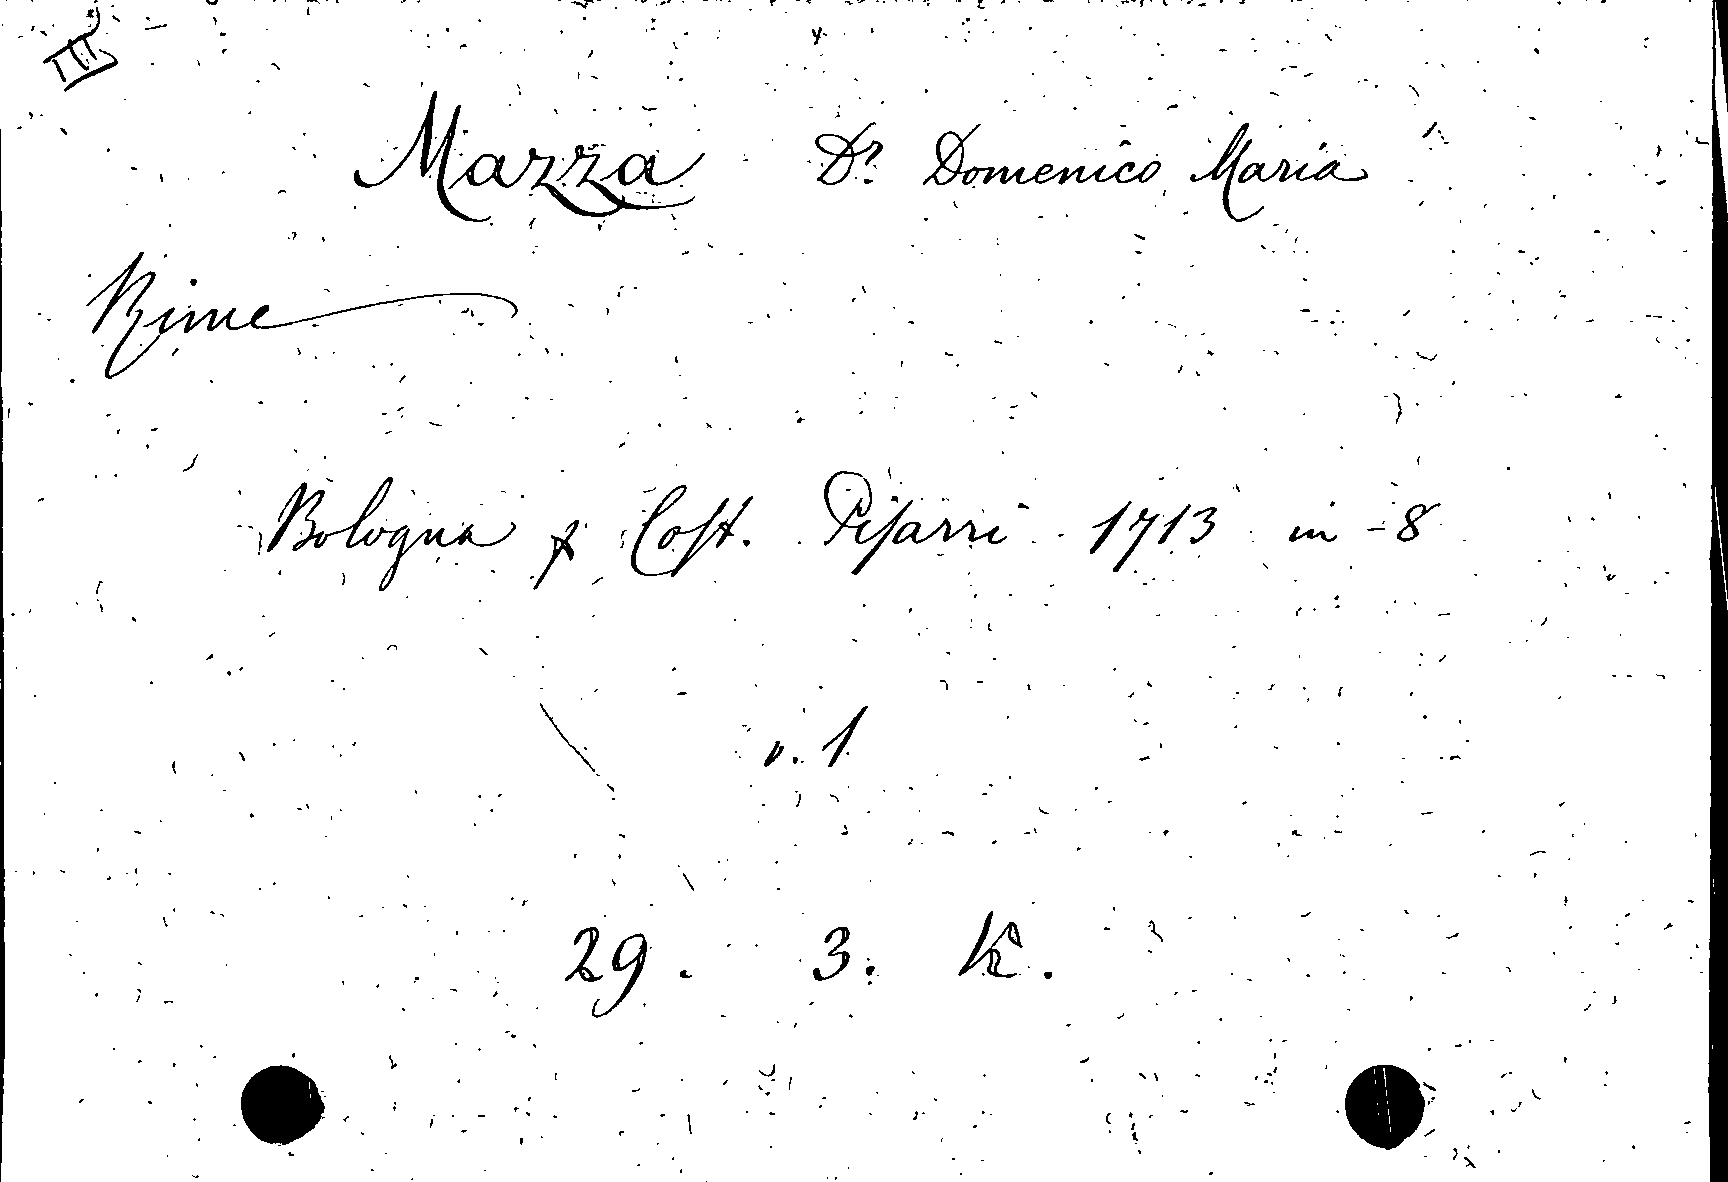 III
Mazza Dr. Domenico Maria
Rime
Bologna p Cost. Pisarri 1713 in-8
v. 1
29. 3. K.